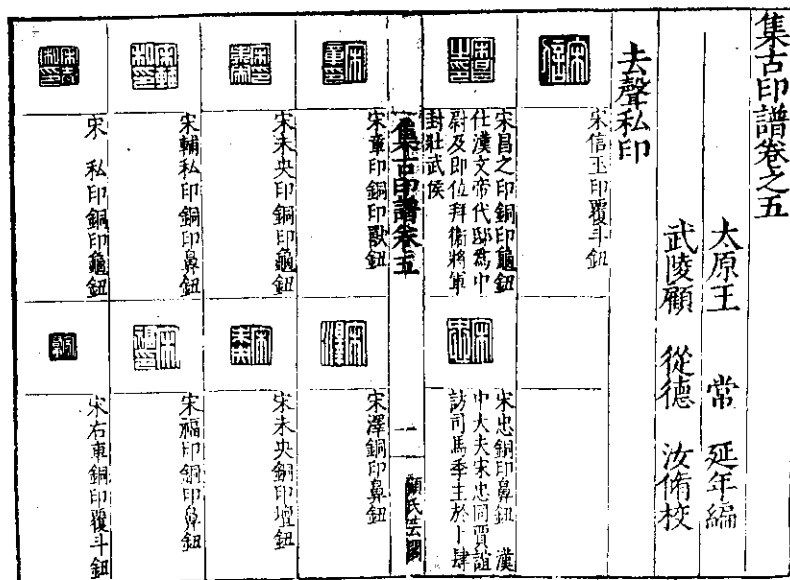 集古印譜卷之五
太原王 常 延年編
武陵顧 從德 汝脩校
去聲私印
宋信玉印覆斗鈕
宋昌之印銅印龜鈕
仕漢文帝代邸為中
尉及即位拜衛將軍
封壯武侯
宋忠銅印鼻鈕 漢
中大夫宋忠同賈誼
訪司馬季主於卜肆
集古印譜卷五
一
顧氏芸閣
宋章印銅印獸鈕
宋澤銅印鼻鈕
宋未央印銅印龜鈕
宋未央銅印壇鈕
宋輔私印銅印鼻鈕
宋福印銅印鼻鈕
宋 私印銅印龜鈕
宋右車銅印覆斗鈕